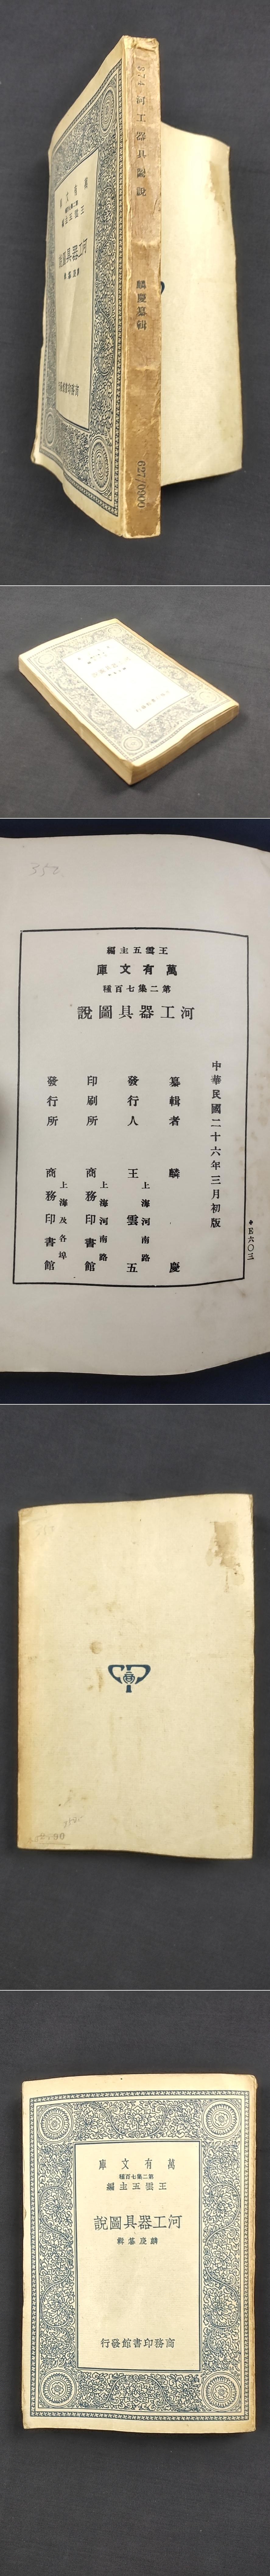 874 河工器具圖說 麟慶纂輯 627/0900
萬有文庫
王雲五主編
河工器具圖說
麟慶纂輯
商務印書館發行
352
王雲五主編
萬有文庫
第二集七百種
河工器具圖說
中華民國二十六年三月初版
纂輯者 麟慶
發行人 王雲五
上海河南路
印刷所 商務印書館
上海河南路
發行所 商務印書館
上海及各埠
◆E六〇三
萬有文庫
第二集七百種
王雲五主編
河工器具圖說
麟慶纂輯
商務印書館發行